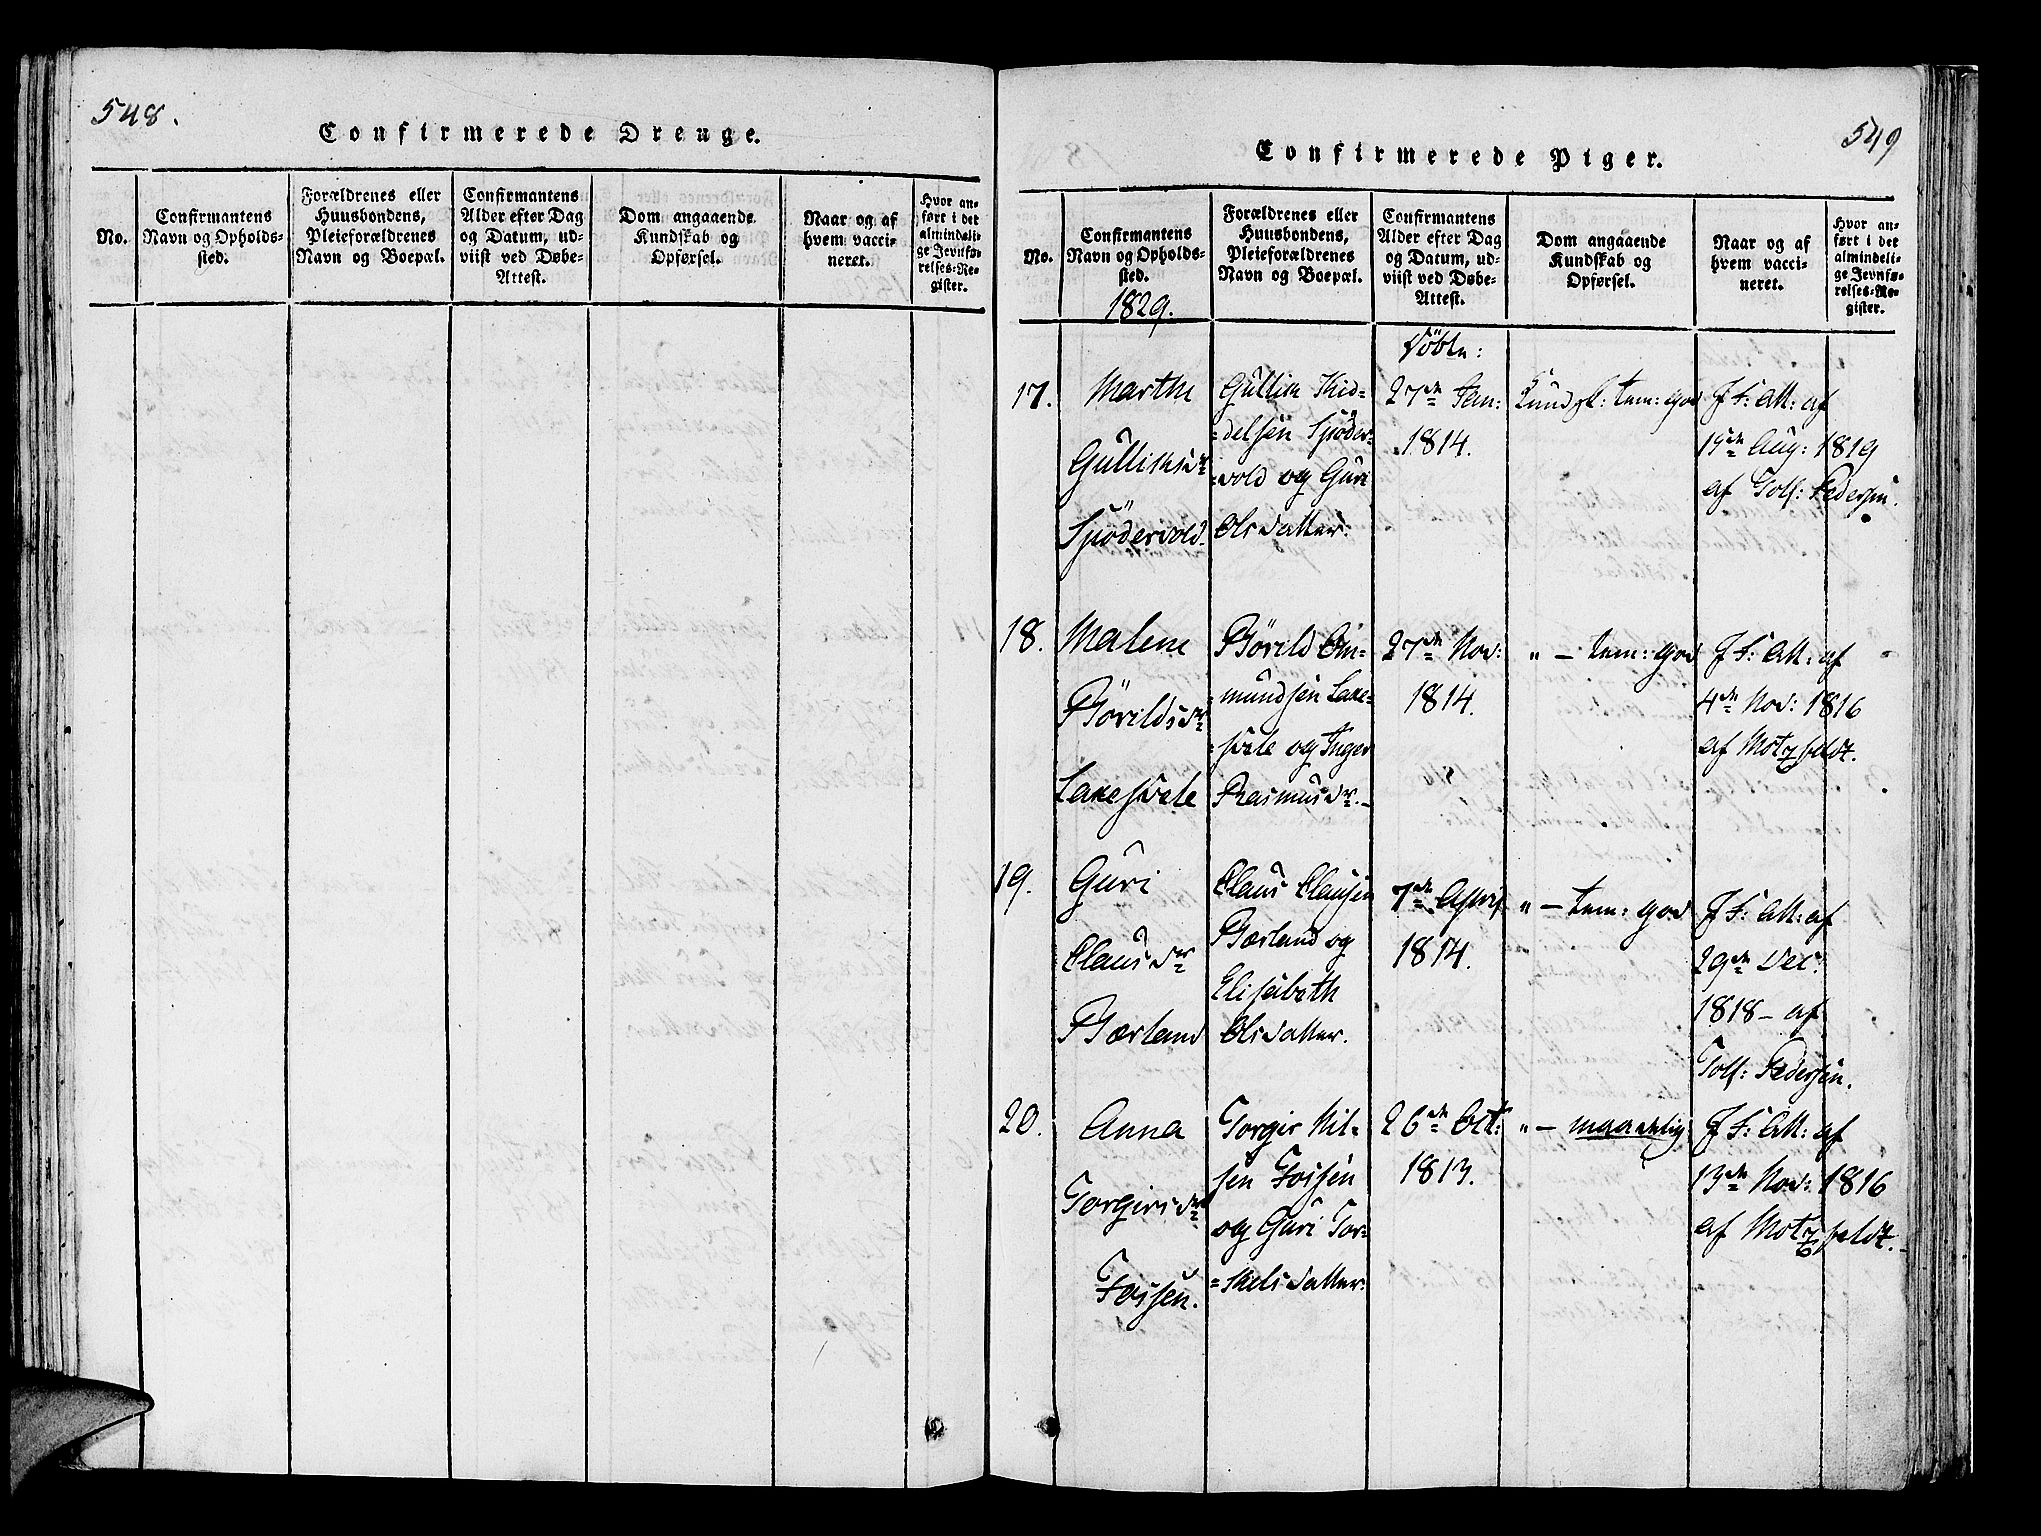 548.
Confirmerede Drenge.
No.
Confirmantens
Navn og Opholds-
sted.
Forældrenes eller
Huusbondens,
Pleieforældrenes
Navn og Boepæl.
Confirmantens
Alder efter Dag
og Datum, ud-
viist ved Døbe-
Attest.
Dom angaaende
Kundskab og
Opførsel.
Naar og af
hvem vacci-
neret.
Hvor an-
ført i det
almindeli-
ge Jevnfø-
relses-Re-
gister.
549
Confirmerede Piger.
No.
Confirmantens
Navn og Opholds-
sted.
1829.
Forældrenes eller
Huusbondens,
Pleieforældrenes
Navn og Boepæl.
Confirmantens
Alder efter Dag
og Datum, ud-
viist ved Døbe-
Attest.
Dom angaaende
Kundskab og
Opførsel.
Naar og af
hvem vacci-
neret.
Hvor an-
ført i det
almindeli-
ge Jevnfø-
relses-Re-
gister.
17.
Marthe
Gulliksdr
Spödervold.
Gullik Kid-
-delsen Spöder-
-vold og Guri
Olsdatter.
Döbte:
27de Jan:
1814.
Kundsk: tem: god
J F: Att: af
19de Aug: 1819
af Tolf: Pedersen.
18.
Malene
Börildsdr
Laxesvele
Börild Om-
mundsen Laxe-
-svele og Inger
Rasmusdr.
27de Nov:
1814.
" - tem: god
J F: Att: af
4de Nov: 1816
af Motzfeldt.
19.
Guri
Clausdr
Bærland
Claus Clausen
Bærland og
Elisabeth
Olsdatter.
7de April
1814.
" - tem: god
J F: Att: af
29de Dec:
1818 - af
Tolf: Pedersen.
20.
Anna
Torgersdr
Fossen.
Torger Nil-
sen Fossen
og Guri Tor-
-kelsdatter.
26de Oct:
1813.
" - maadelig
J F: Att: af
13de Nov: 1816
af Motzfeldt.